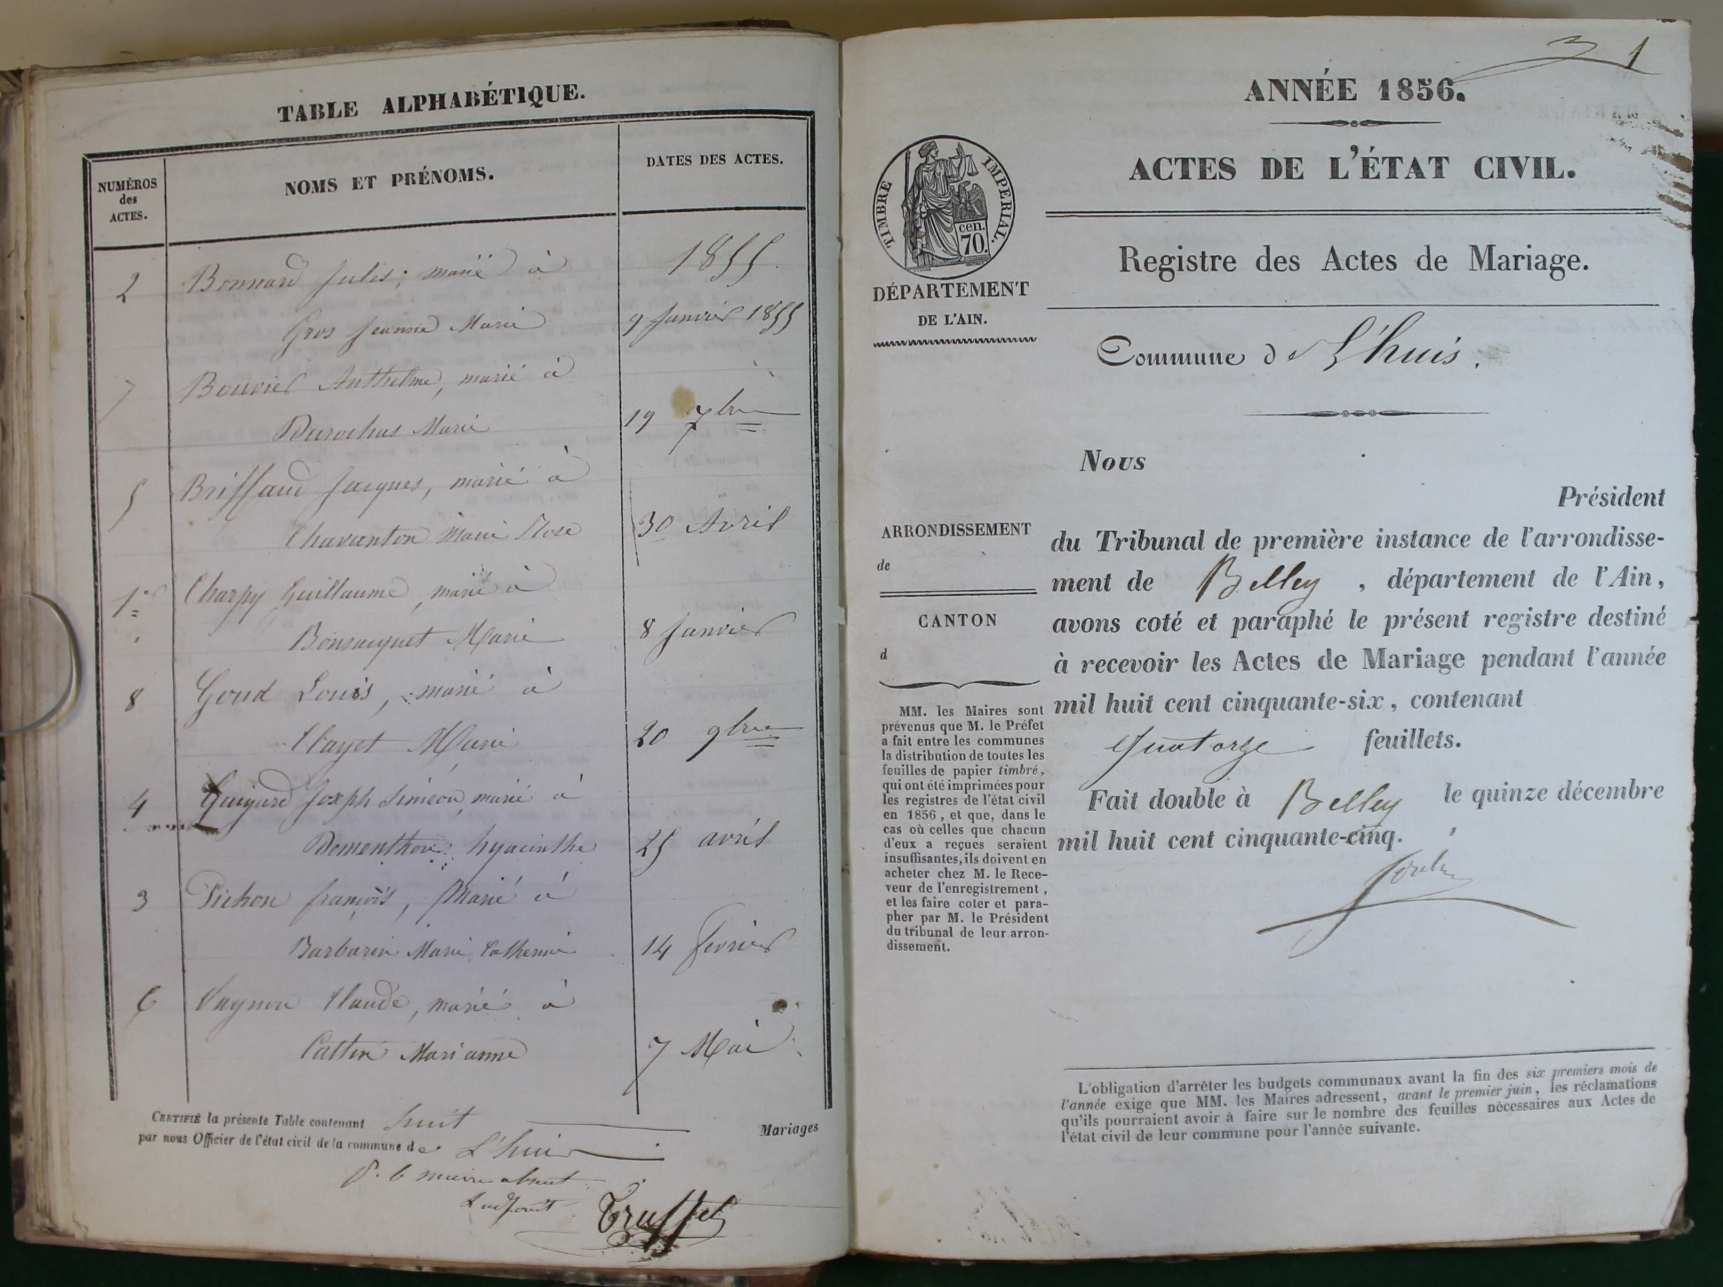 TABLE ALPHABÉTIQUE.
NUMÉROS
des
ACTES.
NOMS ET PRÉNOMS.
DATES DES ACTES.
1855
2 Bonnard Jules; marié à
Gros Jeannie Marie 9 Janvier 1855
7 Bouvier Anthelme, marié à
Durochas Marie 19 7bre
5 Briffaud Jacques, marié à
Chavanton Marie Rose 30 Avril
1er Charpy Guillaume, marié à
Bonsacquet Marie 8 Janvier
8 Goud Louis, marié à
Clayet Marie 20 9bre
4 Guigard Joseph Siméon, marié à
Dementhon hyacinthe 25 avril
3 Pichon françois, Marié à
Barbarin Marie Catherine 14 fevrier
6 Vagnon Claude, marié à
Cattin Marianne 7 Mai
CERTIFIÉ la présente Table contenant huit Mariages
par nous Officier de l'état civil de la commune de L'huis
Pr le maire absent
L'adjoint Truffet
1
ANNÉE 1856.
ACTES DE L'ÉTAT CIVIL.
TIMBRE IMPERIAL.
cen.
70.
DÉPARTEMENT
DE L'AIN.
Registre des Actes de Mariage.
Commune de L'huis.
ARRONDISSEMENT
de
CANTON
d
MM. les Maires sont
prévenus que M. le Préfet
a fait entre les communes
la distribution de toutes les
feuilles de papier timbré,
qui ont été imprimées pour
les registres de l'état civil
en 1856, et que, dans le
cas où celles que chacun
d'eux a reçues seraient
insuffisantes, ils doivent en
acheter chez M. le Rece-
veur de l'enregistrement,
et les faire coter et para-
pher par M. le Président
du tribunal de leur arron-
dissement.
Nous
Président
du Tribunal de première instance de l'arrondisse-
ment de Belley, département de l'Ain,
avons coté et paraphé le présent registre destiné
à recevoir les Actes de Mariage pendant l'année
mil huit cent cinquante-six, contenant
quatorze feuillets.
Fait double à Belley le quinze décembre
mil huit cent cinquante-cinq.
L'obligation d'arrêter les budgets communaux avant la fin des six premiers mois de
l'année exige que MM. les Maires adressent, avant le premier juin, les réclamations
qu'ils pourraient avoir à faire sur le nombre des feuilles nécessaires aux Actes de
l'état civil de leur commune pour l'année suivante.